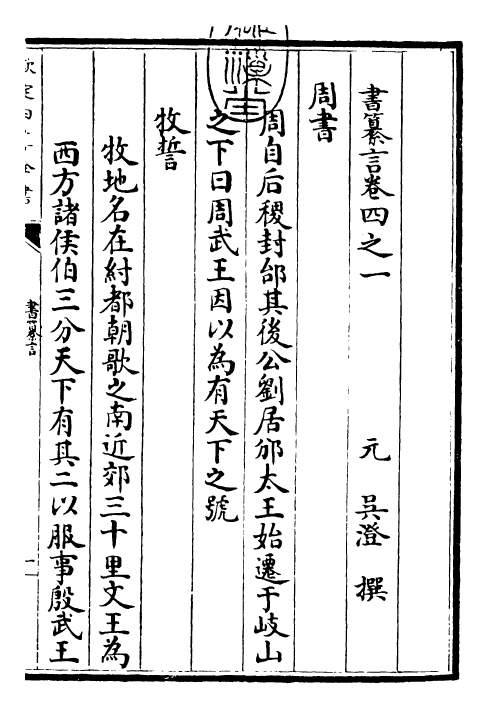 書纂言卷四之一　元　吳澄　撰
周書
周自后稷封邰其後公劉居邠太王始遷于岐山
之下曰周武王因以為有天下之號
牧誓
牧地名在紂都朝歌之南近郊三十里文王為
西方諸侯伯三分天下有其二以服事殷武王
書纂言
一